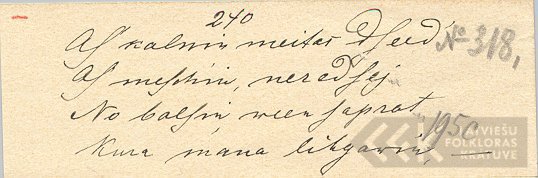 240
As kalnin meitas dseed
№ 318,
As meschin, neredsej
No balsin ween saprat
1950
Kura mana ligawin, —
LATVIEŠU
FOLKLORAS
KRĀTUVE